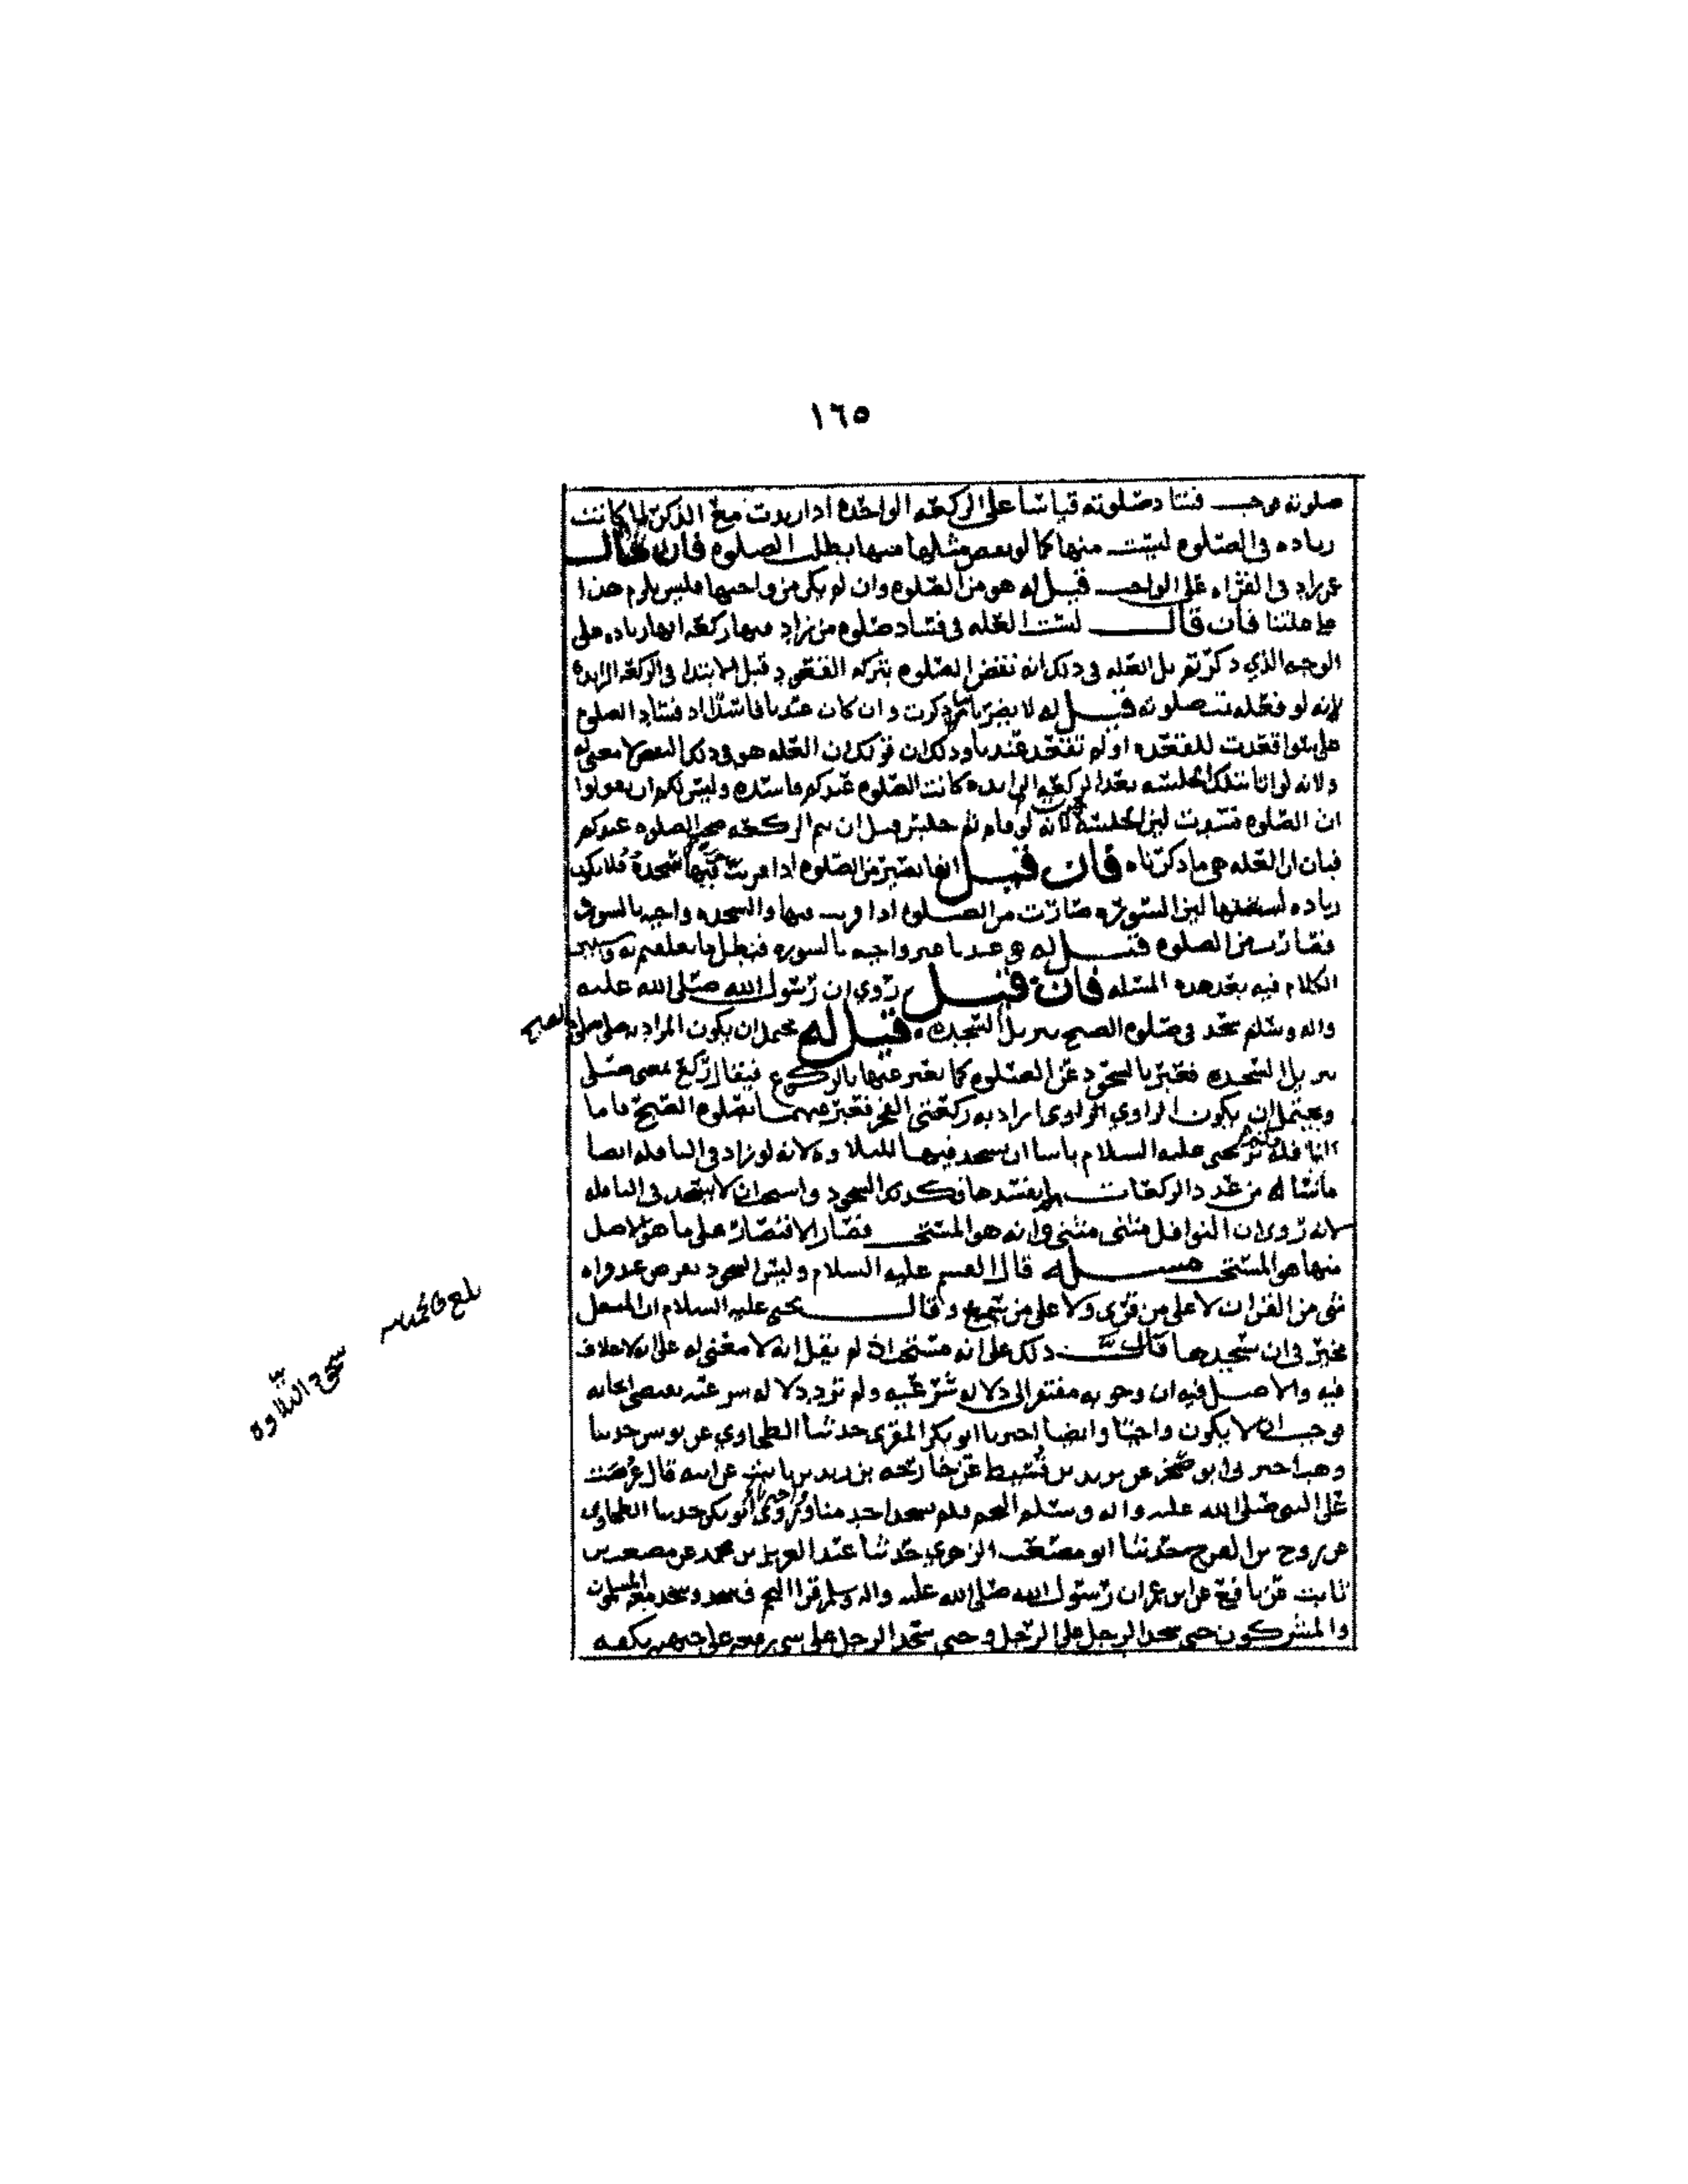 ١٦٥
صلوته فوجب فساد صلوته قياسا على الركعه الواحده اذا زيدت مع الذكر لما كانت
زياده في الصلوه ليست منها كما لو نقص مثلها منها بطلت الصلوه فان قال
فمن زاد في القراه على الواجب قيل له هو من الصلوه وان لم يكن من واجبها فليس يلزم هذا
على علتنا فان قال ليست العله في فساد صلوه من زاد فيها ركعه انها زياده على
الوجه الذي ذكرتم بل العله في ذلك انه نقض الصلوه بتركه القعود قبل الابتدا في الركعه الزايده
لانه لو فعله تمت صلوته قيل له لا يضرنا ما ذكرت وان كان عندنا فاسدا اذ فساد الصلوه
على سوا قعدت للقعده او لم تقعد عندنا وذلك ان قولك ان العله هو في ذلك النقص لا معنى له
ولانه لو اتا بتلك الجلسه بعد الركعه الزايده كانت الصلوه عندكم فاسده وليس لكم ان يقولوا
ان الصلوه فسدت لترك الجلسه لانه لو قام ثم جلس قبل ان يتم الركعه صحت الصلوه عندكم
فبان ان العله هي ما ذكرناه فان قيل انها تصير من الصلوه اذا قريت فيها سجده فلا يكون
زياده لستضنها لان السوره صارت من الصلوه اذا قريت فيها والسجده واجبه بالسوره
فصارت من الصلوه قيل له هي عندنا غير واجبه بالسوره فبطل ما تعلقتم به وسيجي
الكلام فيه بعد هذه المسله فان قيل روي ان رسول الله صلى الله عليه
واله وسلم سجد في صلوه الصبح بتنزيل السجده قيل له يحتمل ان يكون المراد به صلى صلوه الصبح
بتنزيل السجده فعبر بالسجود عن الصلوه كما يعبر عنها بالركوع فيقال ركع بمعنى صلى
ويحتمل ان يكون الراوي اراد به ركعتي الفجر فعبر عنهما بصلوه الصبح فاما
النافله فلم ير يحيى عليه السلام باسا ان يسجد فيها للتلاوه لانه لو زاد في النافله ايضا
ما شا له من عدد الركعات لم يفسدها فكذلك السجود واستحب ان لا يسجد في النافله
لانه روي ان النوافل مثنى مثنى وانه هو المستحب فصار الاقتصار على ما هو الاصل
منها هو المستحب مسئله قال القسم عليه السلام وليس السجود بفرض عند قراه
شي من القران لا على من قرى ولا على من سمع وقال يحيى عليه السلام ان المتنفل
مخير في ان يسجدها فدل ذلك على انه مستحب اذ لم يقل انه لا معنى له على انه لا خلاف
فيه والاصل فيه ان وجوبه مفتقر الى دلاله شرعيه ولم ترد دلاله شرعيه بمقتضى ايجابه
فوجب ان لا يكون واجبا وايضا اخبرنا ابو بكر المقرى حدثنا الطحاوي عن يونس حدثنا
وهب اخبرني ابو صخر عن يزيد بن قسيط عن خارجه بن زيد بن ثابت عن ابيه قال عرضت
على النبي صلى الله عليه واله وسلم النجم فلم يسجد احد منا وروى ابو بكر حدثنا الطحاوي
عن روح بن الفرج حدثنا ابو مصعب الزهري حدثنا عبد العزيز بن محمد عن مصعب بن
ثابت عن نافع عن ابن عمر ان رسول الله صلى الله عليه واله وسلم قرا النجم فسجد وسجد معه المسلمون
والمشركون حتى سجد الرجل على الرجل وحتى سجد الرجل على شي رفعه على جبهه بكفه
سجود التلاوه